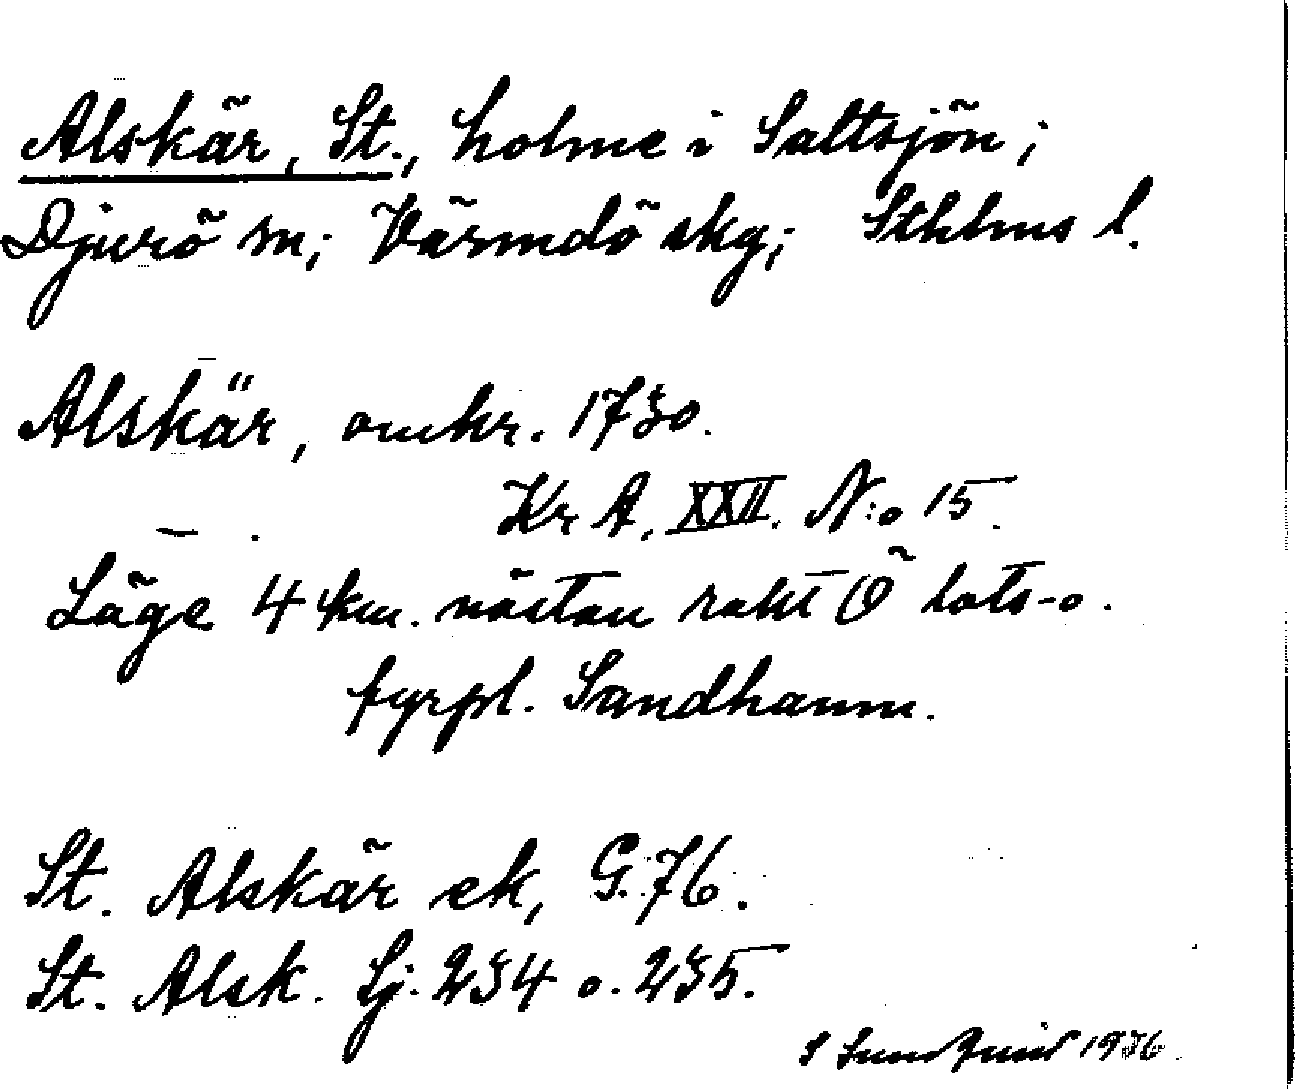 Alskär, St., holme i Saltsjön;
Djurö sn; Värmdö skg; Sthlms l.
Alskär, omkr. 1730.
Kr A. XXII. N:o 15.
Läge 4 km. nästan rakt Ö lots- o.
fyrpl. Sandhamn.
St. Alskär ek, G. 76.
St. Alsk. Sj. 234 o. 235.
S Sundquist 1936